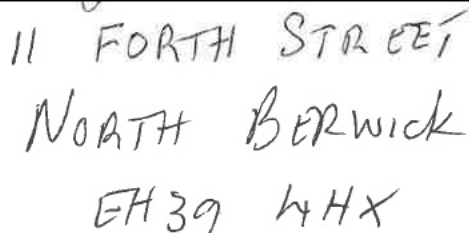 11 FORTH STREET
NORTH BERWICK
EH39 4HX